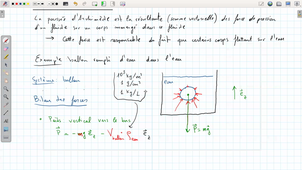 La poussée d'Archimède est la résultante (somme vectorielle) des forces de pression
d'un fluide sur un corps immergé dans ce fluide
→ Cette force est responsable du fait que certains corps flottent sur l'eau
Exemple ballon rempli d'eau dans l'eau
Système ballon
10³ kg/m³
1 g/cm³
1 kg/L
eau
Bilan des forces
• Poids vertical vers le bas
P = - mg e_z = - V_ballon ρ_eau e_z
P = mg
e_z